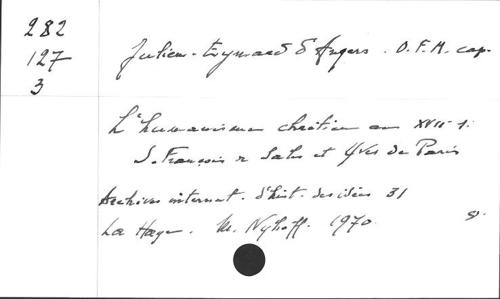 282
127
3
Julien-Eymard d'Angers. O.F.M. cap.
L'humanisme chrétien au XVIIe s.:
S. François de Sales et Yves de Paris
Archives internat. d'hist. des idées 31
La Haye. M. Nyhoff. 1970.